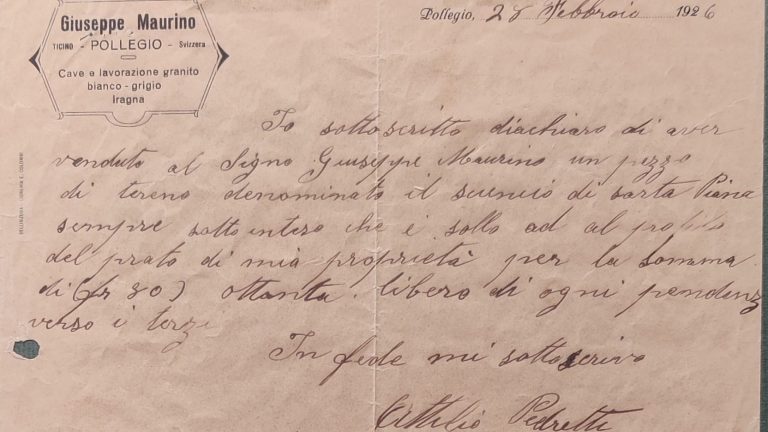 Giuseppe Maurino
TICINO - POLLEGIO - Svizzera
Cave e lavorazione granito
bianco - grigio
Iragna
Pollegio, 28 Febbraio 1926
Io sottoscritto diachiaro di aver
venduto al Signo Giuseppe Maurino un pezzo
di tereno denominato il di sorta Piana
sempre sotto intero che è sollo ad al
del prato di mia proprietà per la somma
di (fr 80) ottanta. libero di ogni pendenz
verso i terzi
In fede mi sottoscrivo
Attilio Pedretti